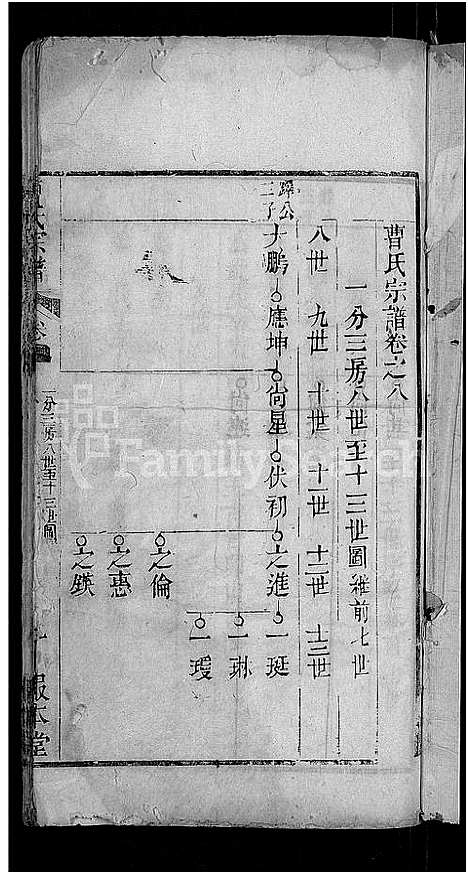 曹氏宗譜卷之八
一分三房八世至十三世圖繼前七世
八世 九世 十世 十一世 十二世 十三世
公三子
大鵬 應坤 尙星 伏初 之進 一珽
一琳
一瑗
之倫
之惠
之鍈
氏宗譜
卷
一分三房八世至十三世圖
報本堂
FamilySearch